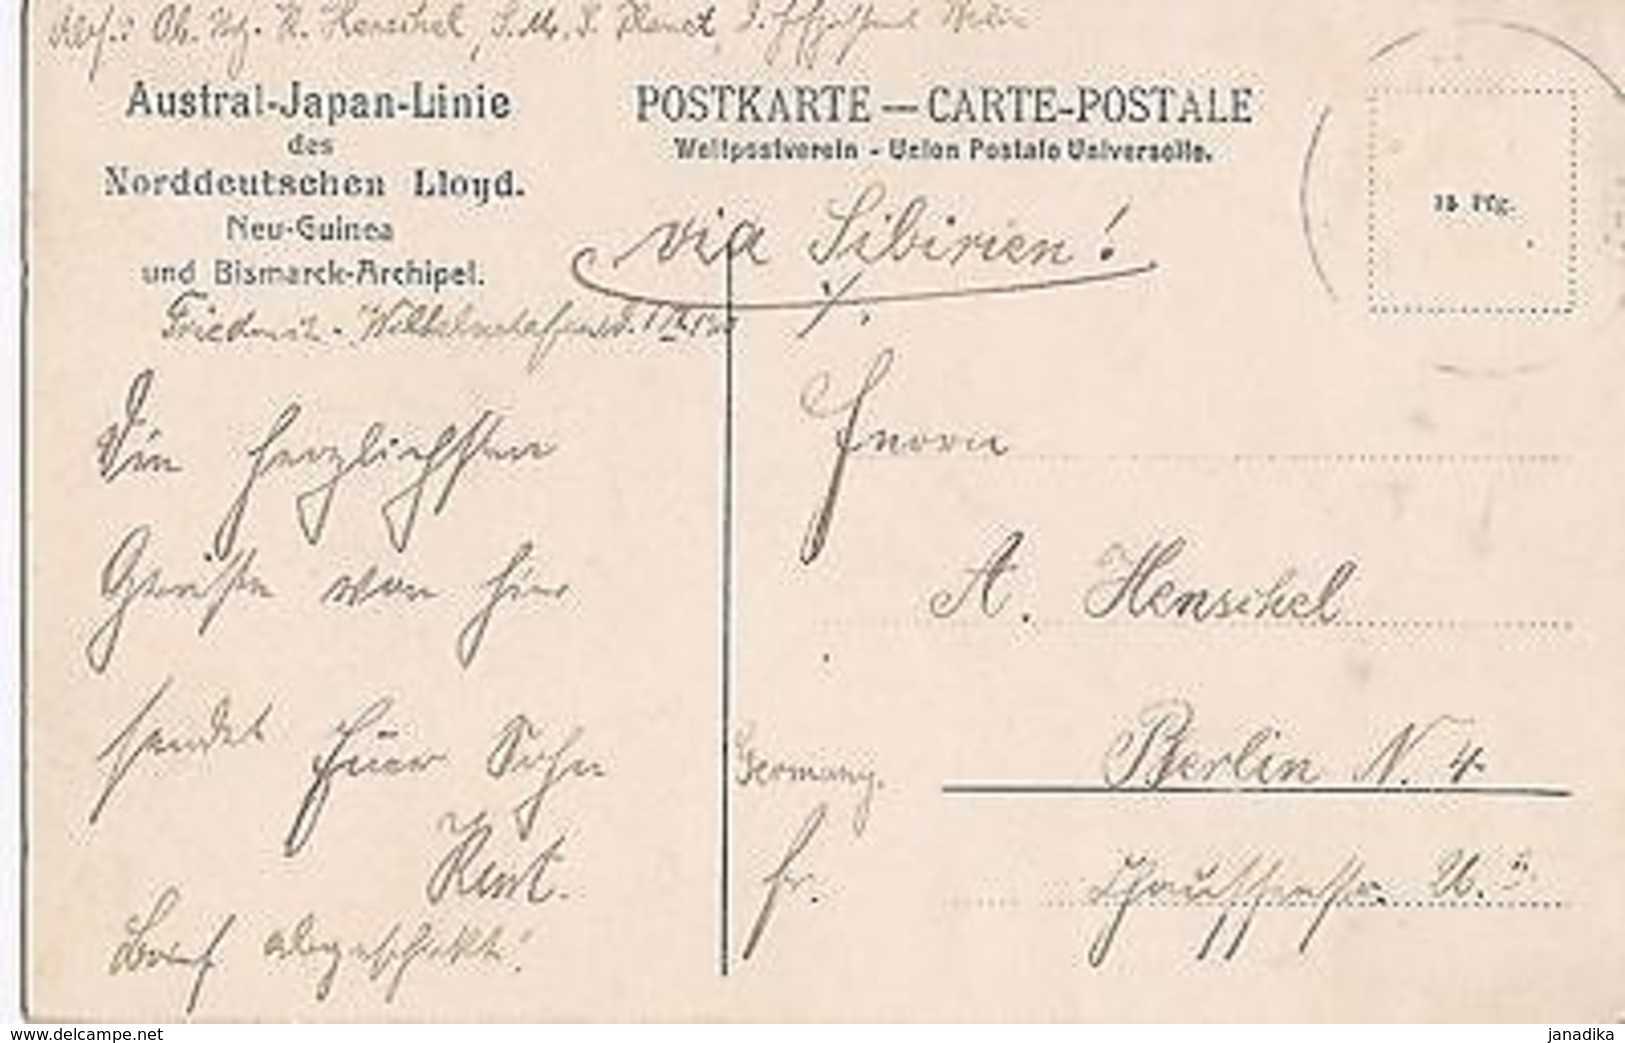 Abs.: Ob. Mtr. K. Henschel, S.M.S. Planet, Berlin
Austral-Japan-Linie
des
Norddeutschen Lloyd.
Neu-Guinea
und Bismarck-Archipel.
POSTKARTE — CARTE-POSTALE
Weltpostverein - Union Postale Universelle.
15 Pfg.
via Sibirien!
Friedrich-Wilhelmshafen d.
Die herzlichsten
Grüße von hier
sendet Euer Sohn
Kurt.
Brief abgeschickt!
Herrn
A. Henschel
Berlin N. 4
Germany.
Chausseestr.
www.delcampe.net
janadika